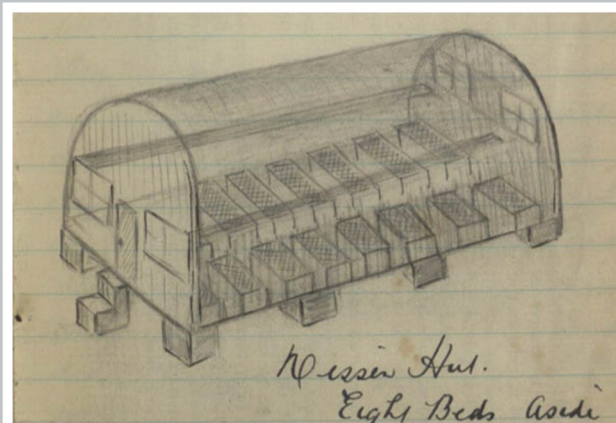 Nissen Hut.
Eight Beds aside